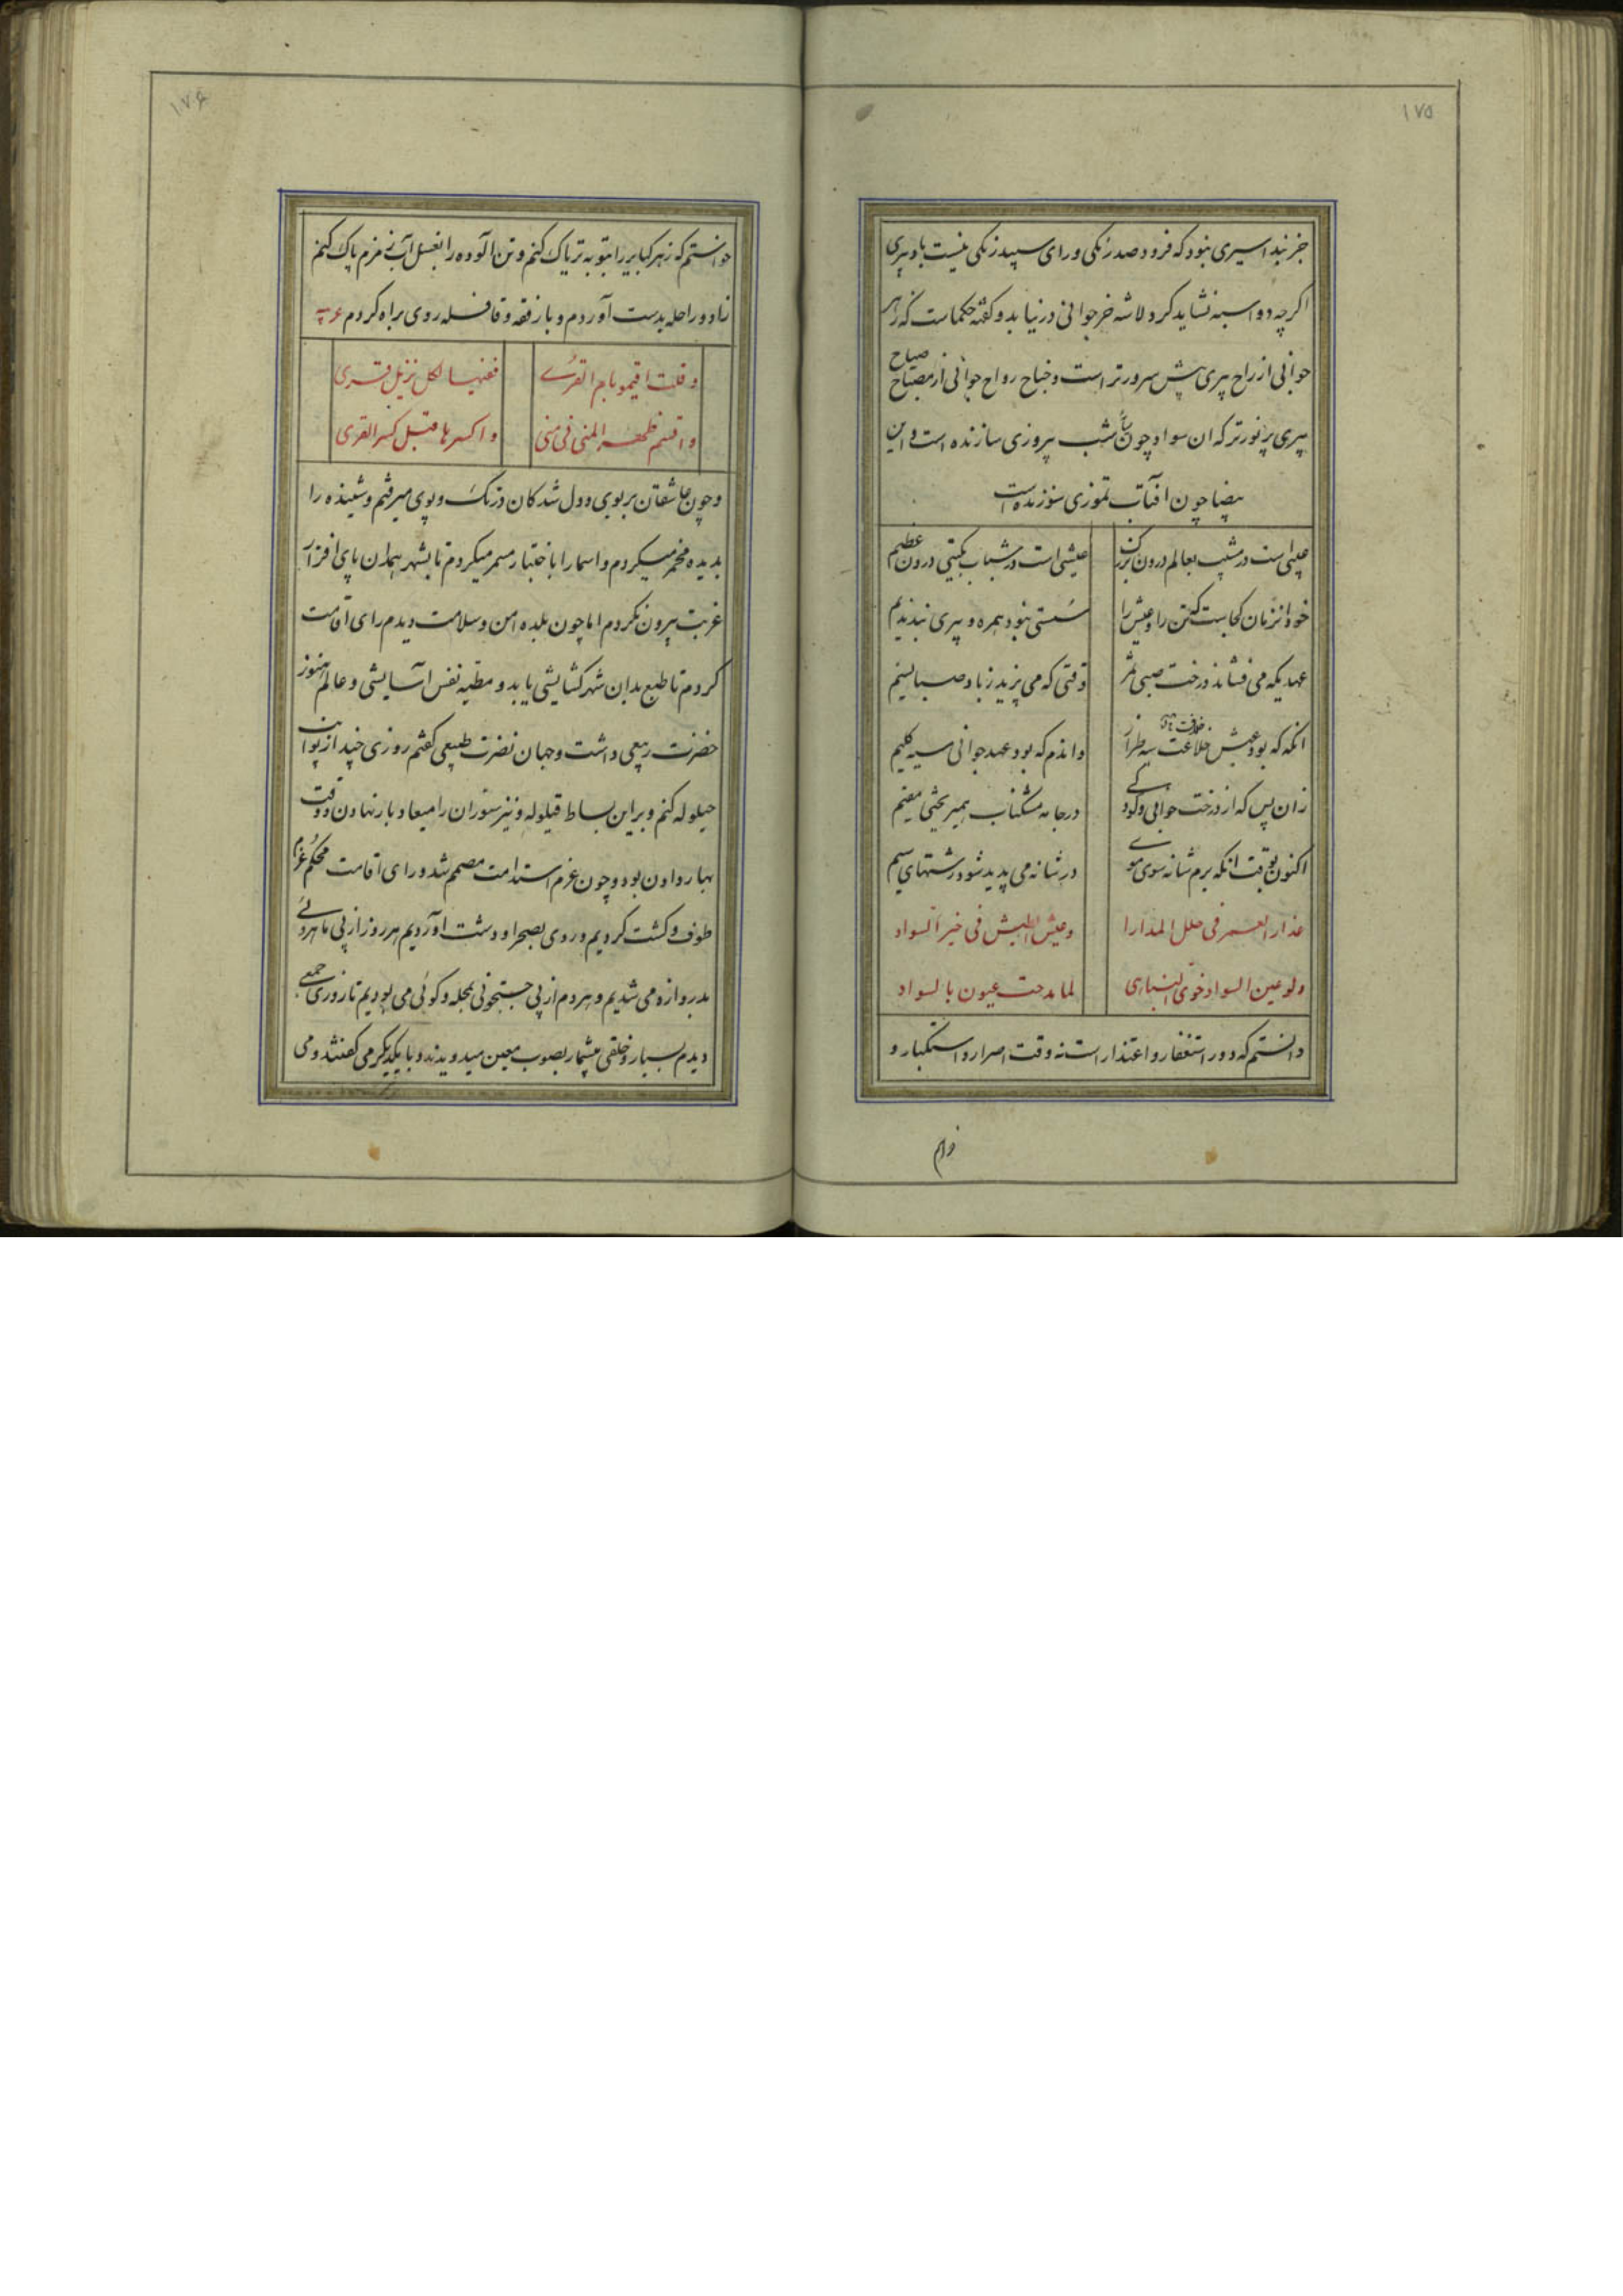 ۱۷۵
جز بند اسیری نبود که فرود صد زنگی ورای سپید زنگی نیست باد پیری
اگرچه دو اسبه نشاید کرد و لاشه خر جوانی درنیابد و گفته حکماست که زهر
جوانی از راح پیری پیش سرورتر است و جناح رواح جوانی از مصباح صباح
پیری پر نورتر که ان سواد چون شب پیروزی سازنده است و این
بیضا چون افتاب تموزی سوزنده است
عیبی است در مشیب بعالم درون بزرگ
عیشی است در شباب بگیتی درون عظیم
خود از زمان کجاست تن را و عیش را
سستی نبود همره و پیری نبد ندیم
عهدیکه می فشاند درخت صبی ثمر
وقتی که می بزید ز باد صبا نسیم
انگه که بود عیش خلاعت سیه طراز
واندم که بود عهد جوانی سیه گلیم
زان پس که از درخت جوانی و کودکی
در جامه مشکناب همیریختی مقیم
اکنون بوقت انکه برم شانه سوی موی
در شانه می پدید شود رشتهای سیم
عذار العمر فی حلل المدارا
وعیش الطیش فی خیر السواد
ولو عین السواد خوی البیاری
لما مدحت عیون بالسواد
دانستم که دور استغفار و اعتذار است نه وقت اصرار و استکبار و
خواستم
۱۷۶
خواستم که زهر کبایر را بتوبه تریاک کنم و تن الوده را بغسل آب زمزم پاک کنم
زاد و راحله بدست آوردم و با رفقه و قافله روی براه کردم
وقلت اقیمو بام القری
ففیها لکل نزیل قری
واقسم ظهر المنی فی منی
واکسرها قبل کسر القری
و چون عاشقان بر بوی و دل شدگان در تک و پوی میرفتم و شنیده را
بدیده مخمر میکردم و اسمار را باختبار مسمر میکردم تا بشهر همدان پای افزار
غربت بیرون نکردم اما چون بلده امن و سلامت دیدم رای اقامت
کردم تا طبع بدان شهر گشایشی یابد و مطیه نفس اسایشی و عالم هنوز
خضرت ربیعی داشت و جهان نضرت طبیعی گفتم روزی چند از پی این
حیلوله کنم و بر این بساط قیلوله و نیز ستوران را میعاد بار نهادن و وقت
بهار دادن بود و چون عزم استدامت مصمم شد و رای اقامت محکم عزم
طوف و گشت کردیم و روی بصحرا و دشت اوردیم هر روز از پی ماهروئی
بدروازه می شدیم و هر دم از پی جستجوئی بمحله و کوئی می بودیم تا روزی جمعی
دیدم بسیار و خلقی بیشمار بصوب معین میدویدند و با یکدیگر می گفتند و می